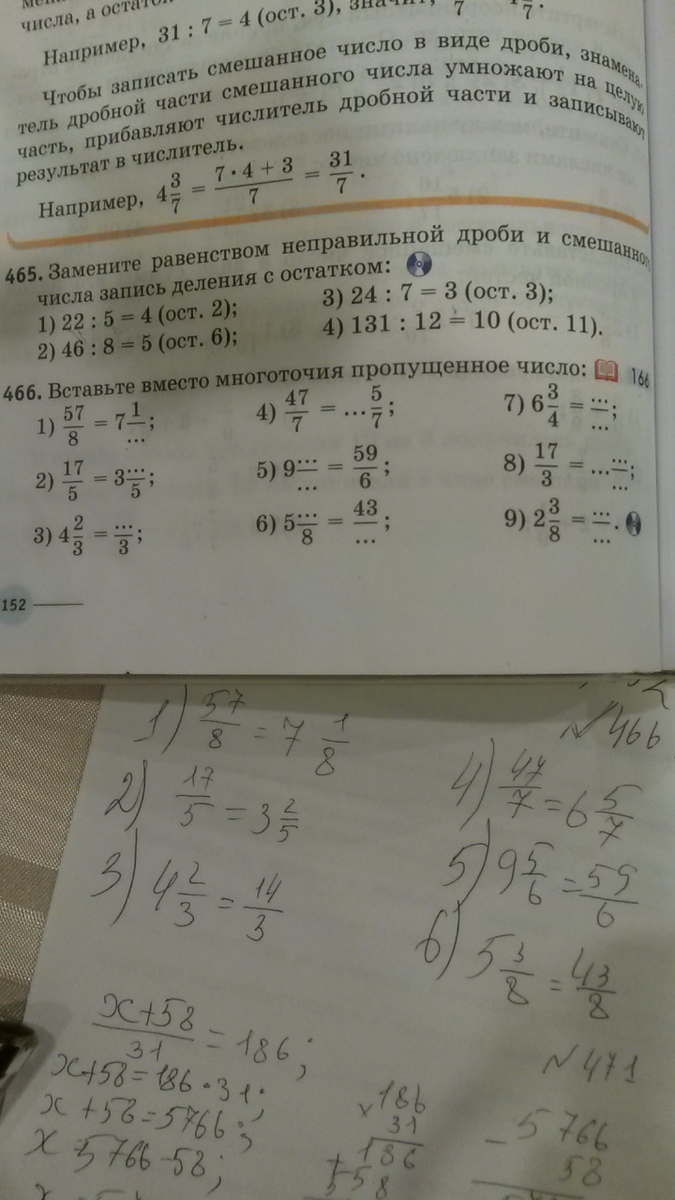 числа, а остаток
Например, 31 : 7 = 4 (ост. 3), значит,
Чтобы записать смешанное число в виде дроби, знамена-
тель дробной части смешанного числа умножают на целую
часть, прибавляют числитель дробной части и записывают
результат в числитель.
Например, 4 3/7 = (7 • 4 + 3)/7 = 31/7.
465. Замените равенством неправильной дроби и смешанного
числа запись деления с остатком:
1) 22 : 5 = 4 (ост. 2); 3) 24 : 7 = 3 (ост. 3);
2) 46 : 8 = 5 (ост. 6); 4) 131 : 12 = 10 (ост. 11).
466. Вставьте вместо многоточия пропущенное число: 166
1) 57/8 = 7 1/...; 4) 47/7 = ... 5/7; 7) 6 3/4 = .../...;
2) 17/5 = 3 .../5; 5) 9 .../... = 59/6; 8) 17/3 = ... .../...;
3) 4 2/3 = .../3; 6) 5 .../8 = 43/...; 9) 2 3/8 = .../....
152
№466
1) 57/8 = 7 1/8
2) 17/5 = 3 2/5
3) 4 2/3 = 14/3
4) 47/7 = 6 5/7
5) 9 5/6 = 59/6
6) 5 3/8 = 43/8
№471
(x+58)/31 = 186;
x+58=186·31;
x+58=5766;
x 5766-58;
×186
31
+186
558
-5766
58